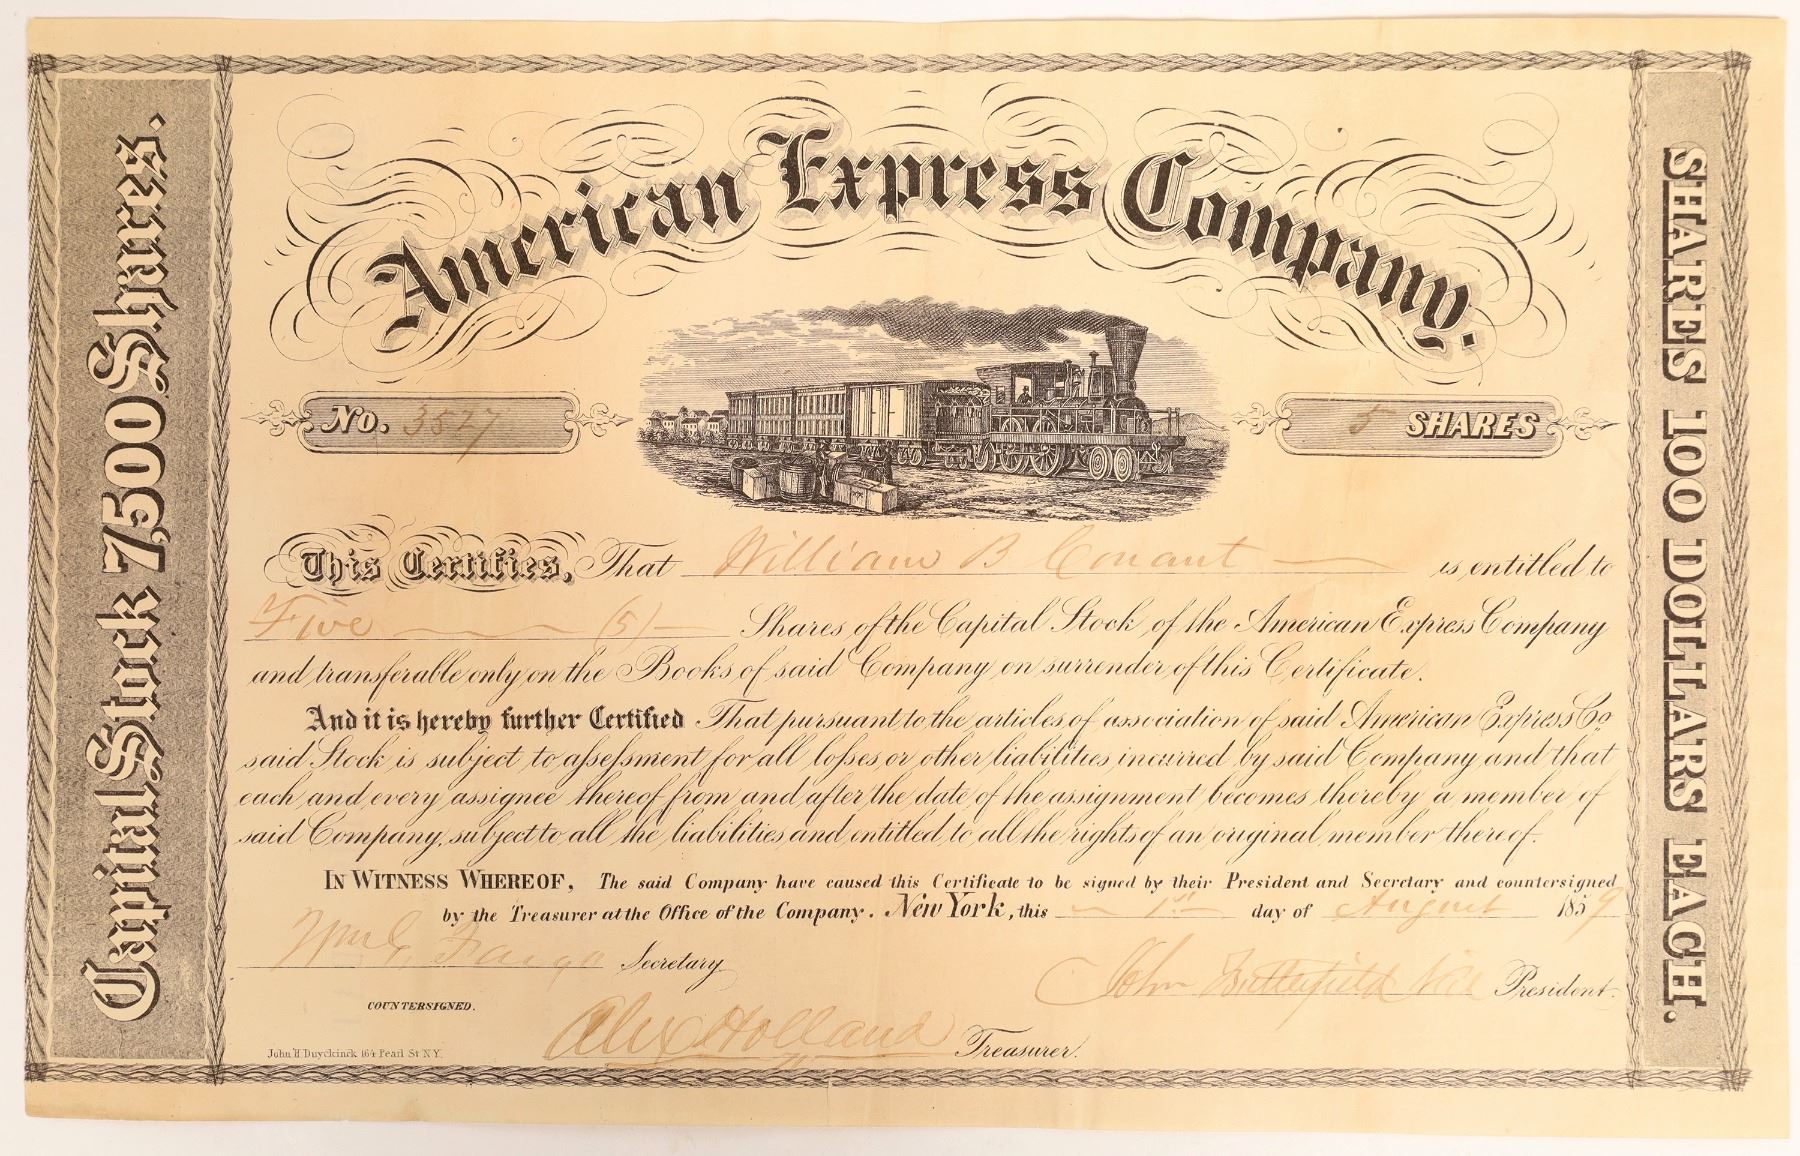 American Express Company.
Capital Stock 7,500 Shares.
SHARES 100 DOLLARS EACH.
No. 3527
5 SHARES
This Certifies, That William B Conant is entitled to
Five (5) Shares of the Capital Stock of the American Express Company
and transferable only on the Books of said Company on surrender of this Certificate.
And it is hereby further Certified That pursuant to the articles of association of said American Express Co
said Stock is subject to assessment for all losses or other liabilities incurred by said Company and that
each and every assignee thereof from and after the date of the assignment becomes thereby a member of
said Company, subject to all the liabilities and entitled to all the rights of an original member thereof.
IN WITNESS WHEREOF, The said Company have caused this Certificate to be signed by their President and Secretary and countersigned
by the Treasurer at the Office of the Company. New York, this 1st day of August 1859
Wm G. Fargo Secretary
John Butterfield Vice President.
COUNTERSIGNED.
Alex Holland Treasurer.
John H Duyckinck 164 Pearl St N.Y.